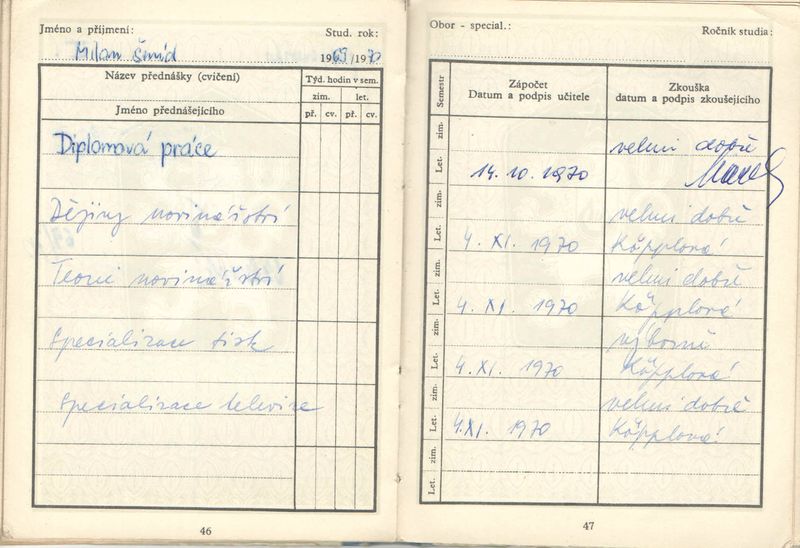 Jméno a příjmení: Stud. rok:
Milan Šmíd 1969/1970
Název přednášky (cvičení) Týd. hodin v sem.
zim. let.
Jméno přednášejícího př. cv. př. cv.
Diplomová práce
Dějiny novinářství
Teorie novinářství
Specializace tisk
Specializace televize
46
Obor - special.: Ročník studia:
Semestr Zápočet Zkouška
Datum a podpis učitele datum a podpis zkoušejícího
zim. velmi dobře
Let. 14. 10. 1970
zim. velmi dobře
Let. 4. XI. 1970 Köpplová
zim. velmi dobře
Let. 4. XI. 1970 Köpplová
zim. výborně
Let. 4. XI. 1970 Köpplová
zim. velmi dobře
Let. 4. XI. 1970 Köpplová
zim.
Let.
47